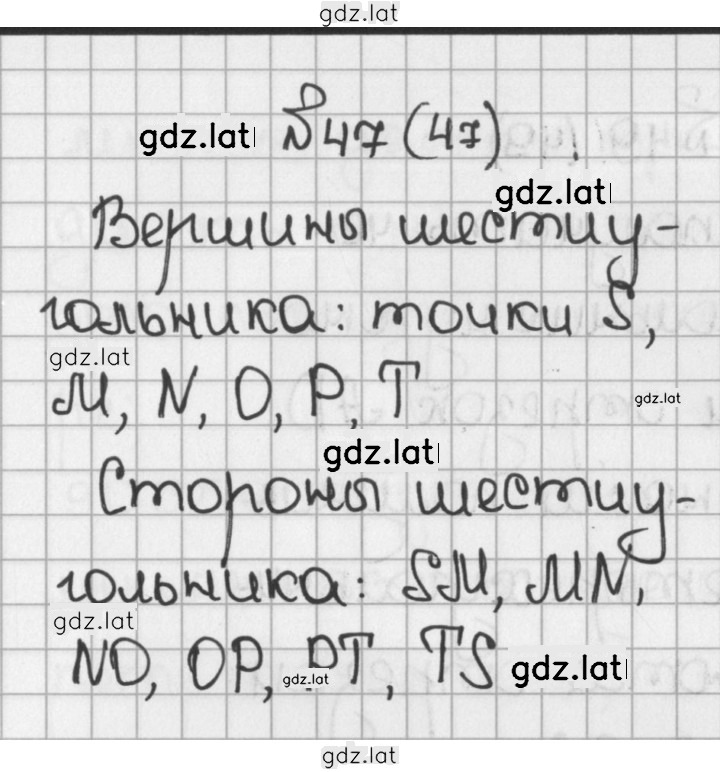 gdz.lat
gdz.lat №47 (47)
gdz.lat
Вершины шестиу-
гольника: точки S,
gdz.lat
M, N, O, P, T
gdz.lat
gdz.lat
Стороны шестиу-
гольника: SM, MN,
gdz.lat
NO, OP, PT, TS gdz.lat
gdz.lat
gdz.lat